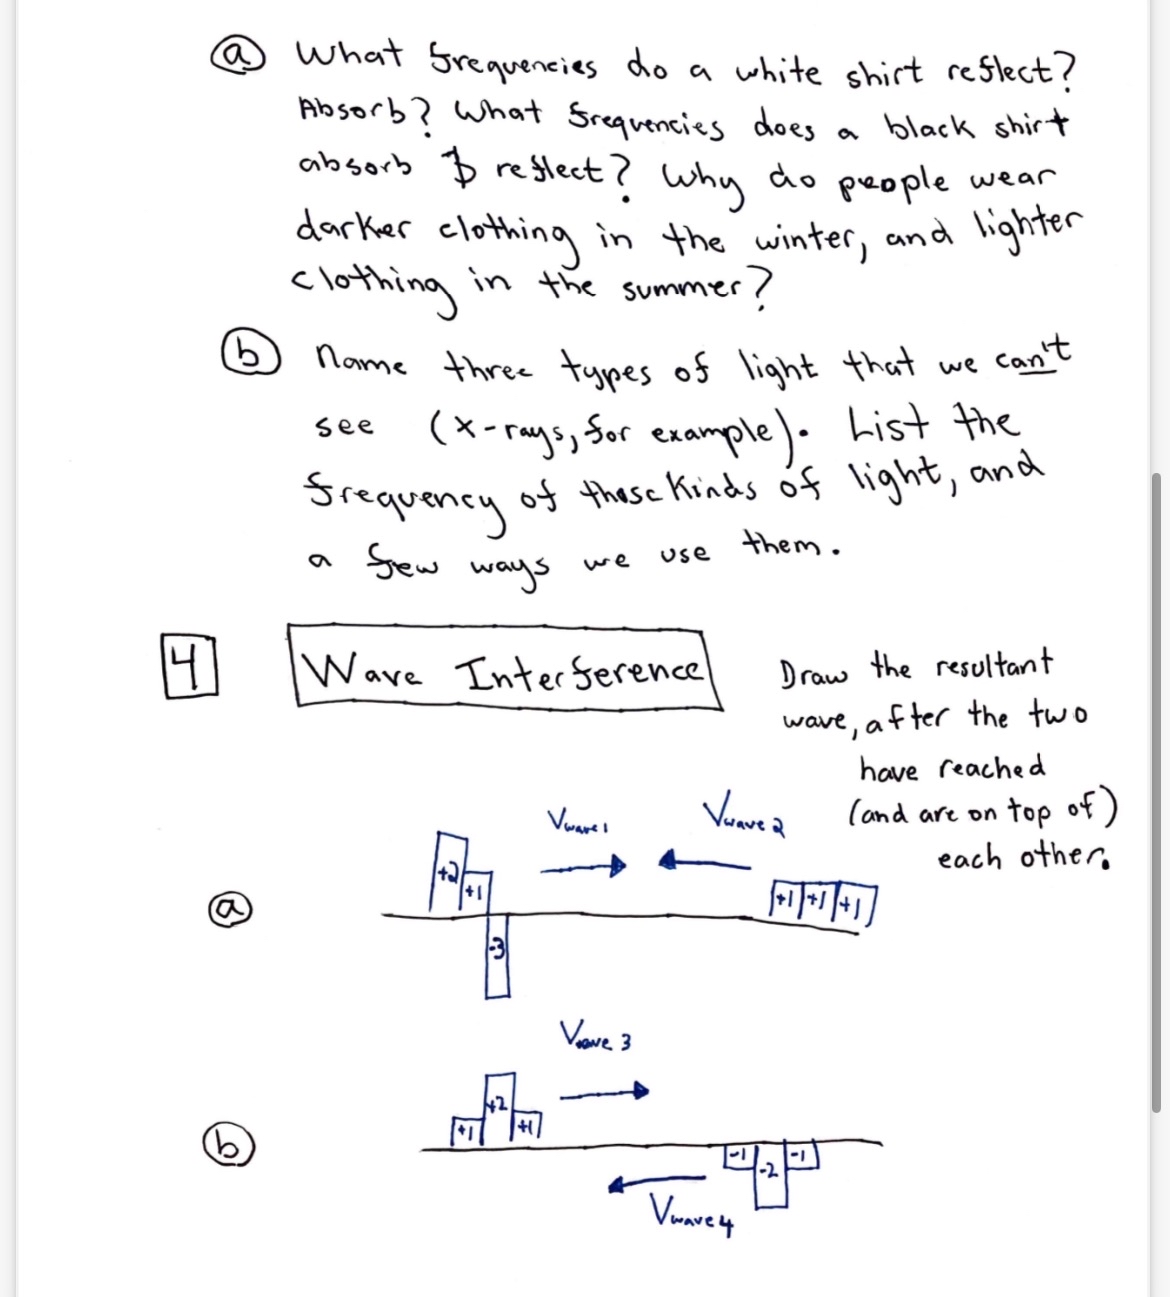 a What frequencies do a white shirt reflect?
Absorb? What frequencies does a black shirt
absorb & reflect? Why do people wear
darker clothing in the winter, and lighter
clothing in the summer?
b Name three types of light that we can't
see (x-rays, for example). List the
frequency of these kinds of light, and
a few ways we use them.
4 Wave Interference
Draw the resultant
wave, after the two
have reached
(and are on top of)
each other.
a
Vwave1
Vwave2
+2 +1 -3
+1 +1 +1
b
Vwave 3
+1 +2 +1
-1 -2 -1
Vwave4